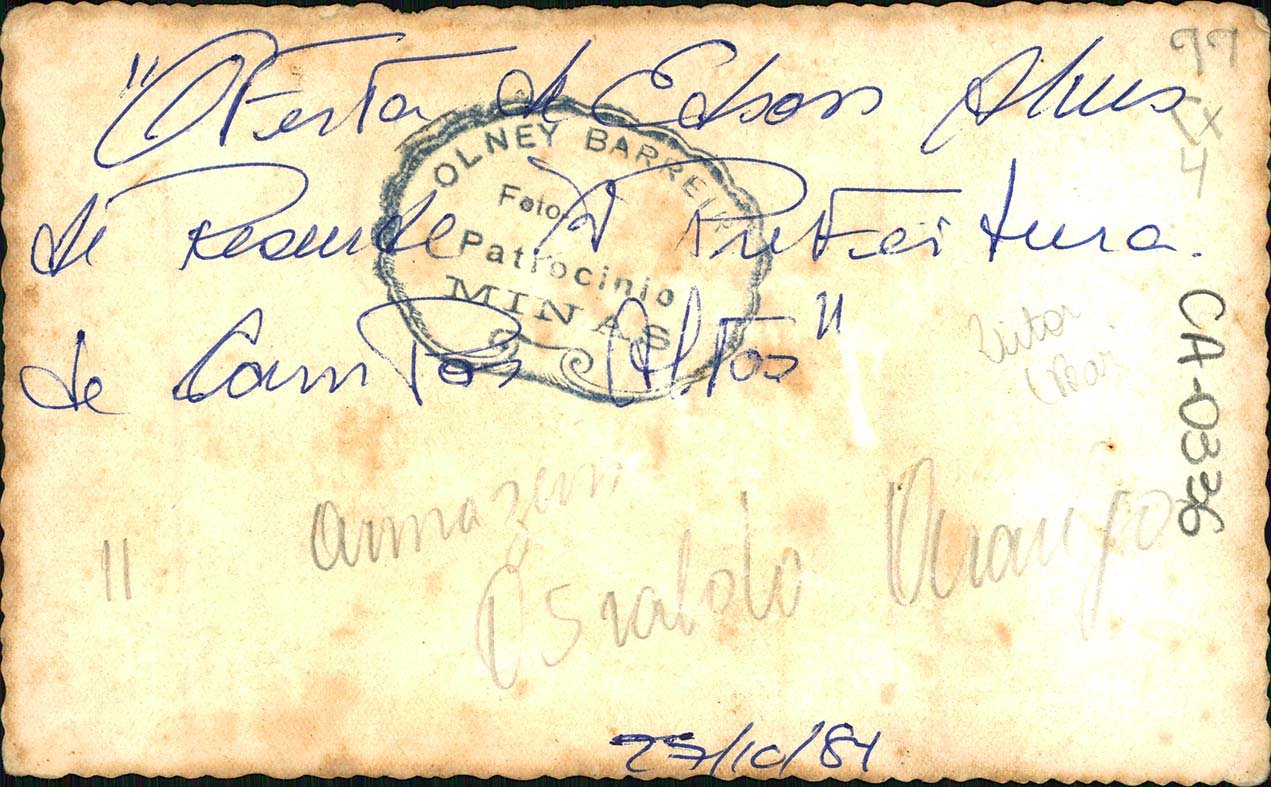 "Oferta de Edson Alves
de Resende à Prefeitura
de Campos Altos"
OLNEY BARREIRO
Foto
Patrocinio
MINAS
99
Cx
4
CA-0336
armazem
Osvaldo Araujo
"
27/10/84